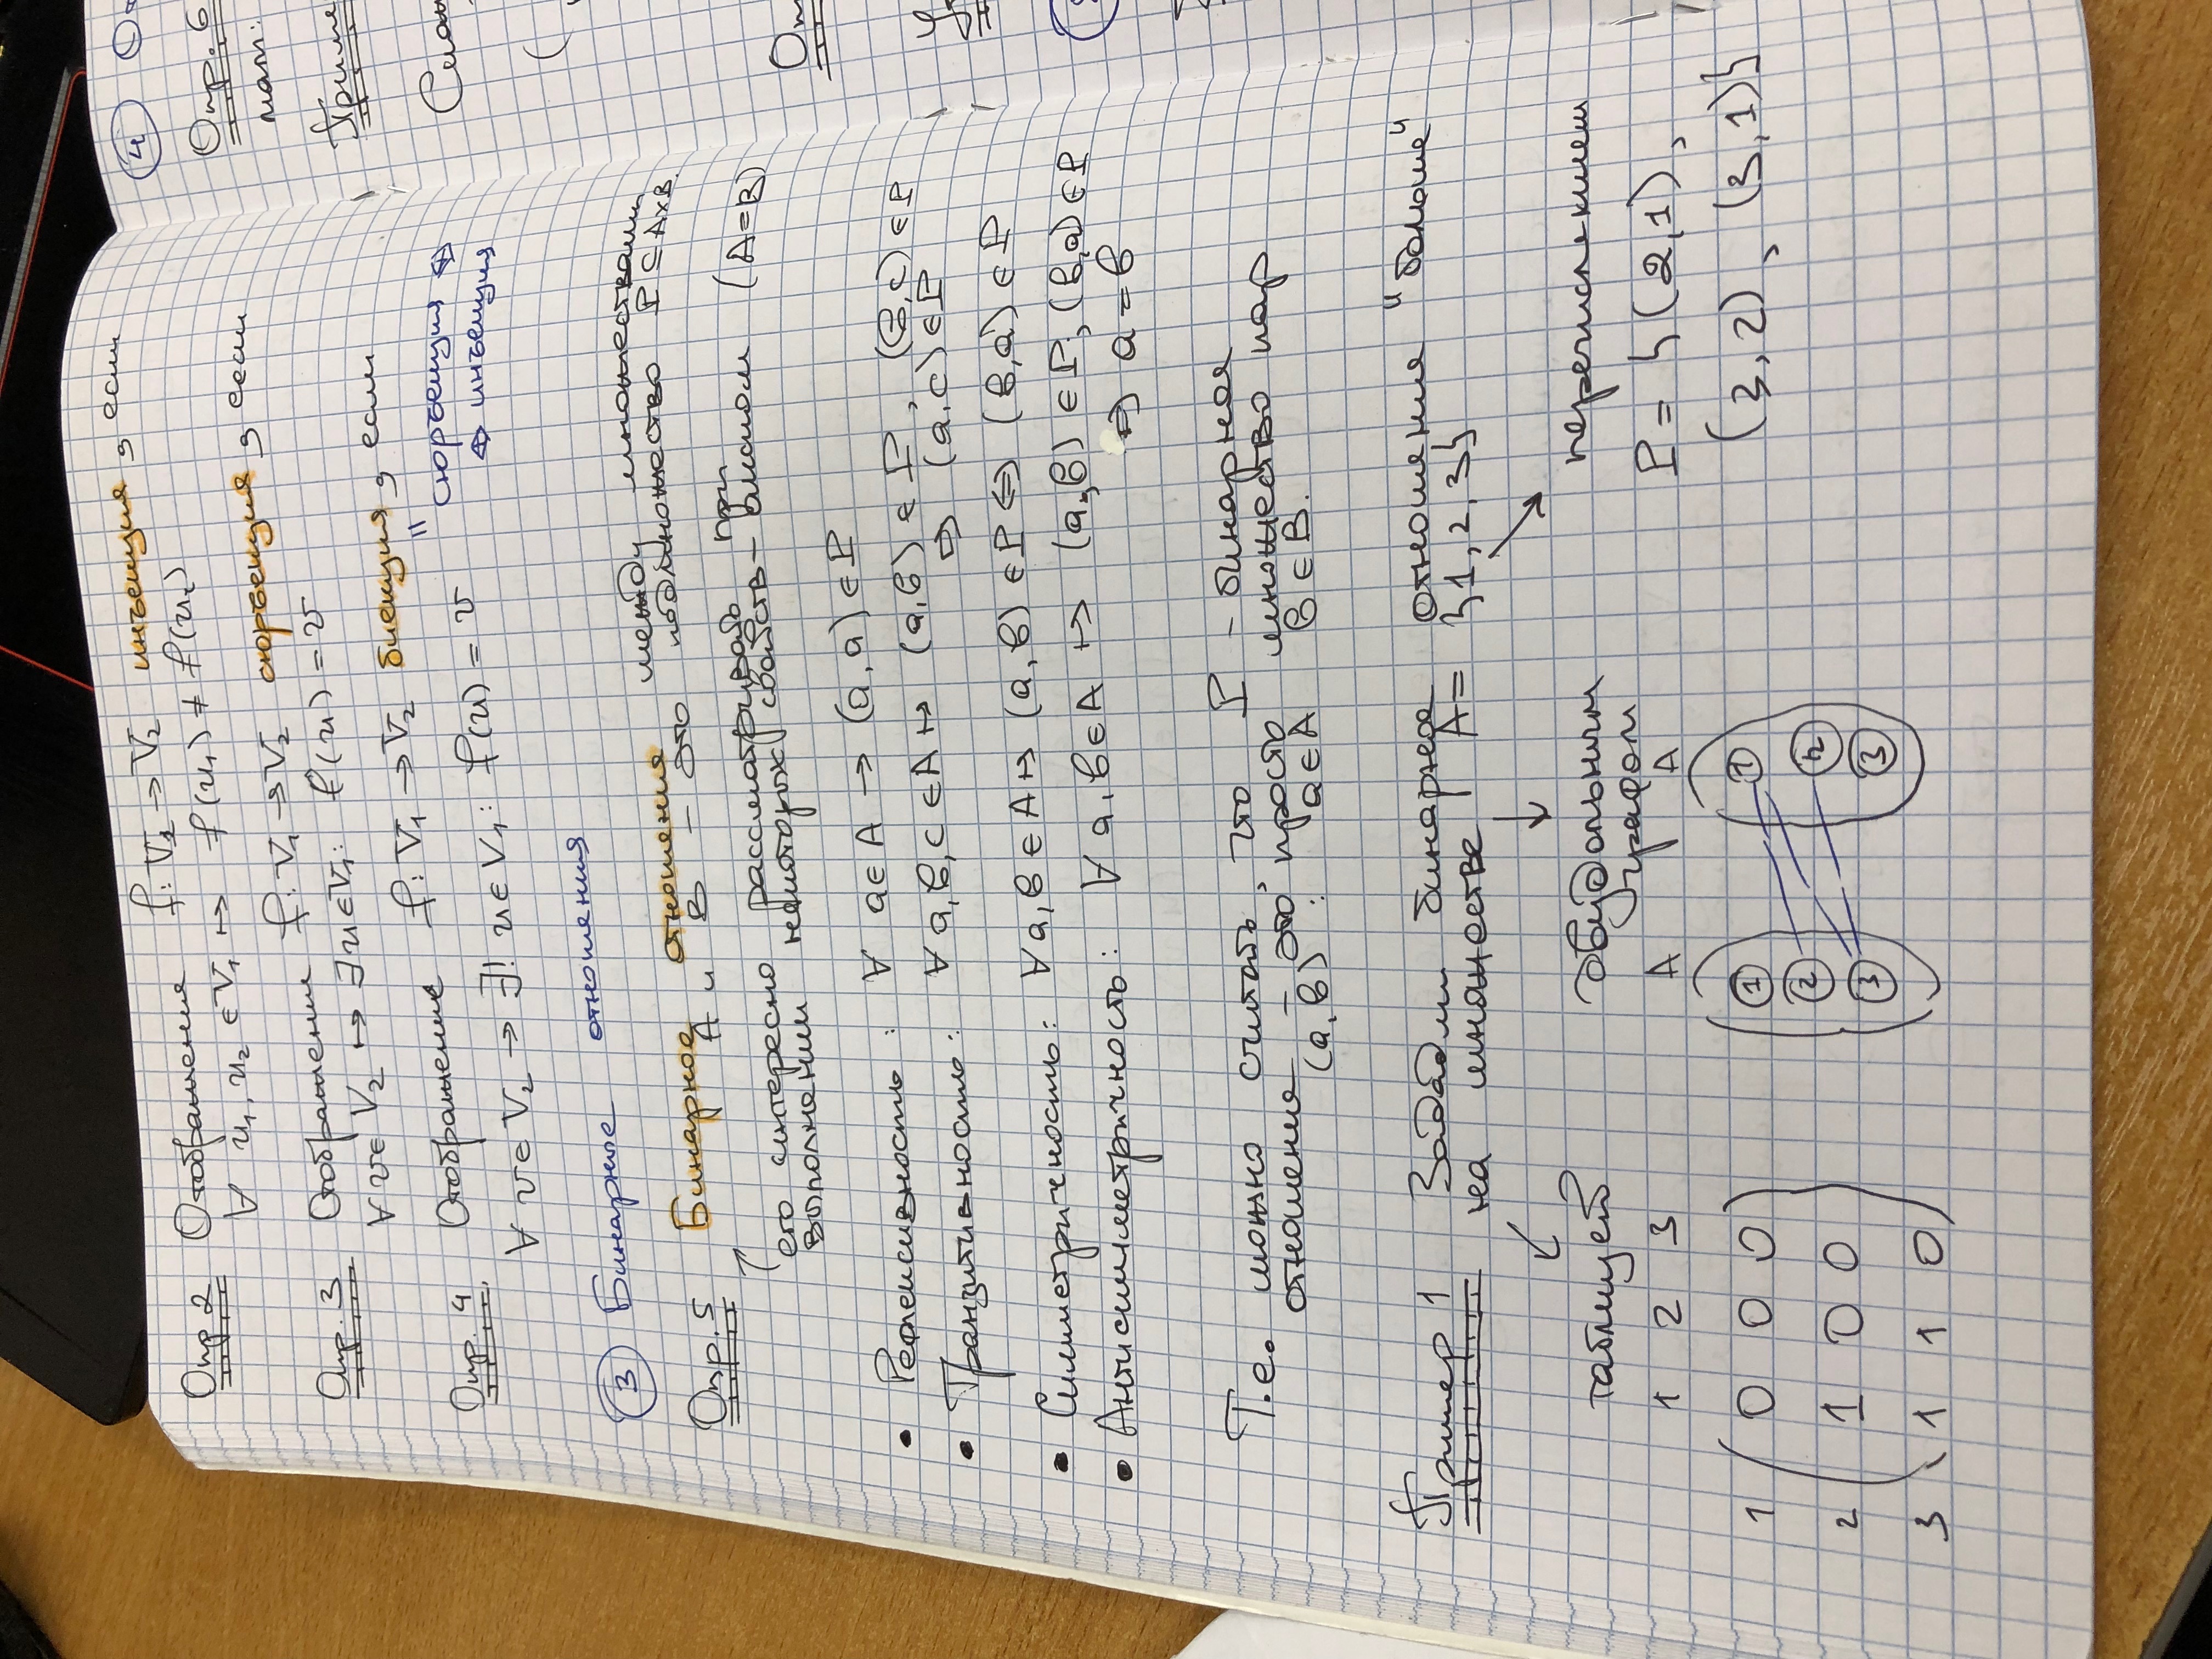 Опр 2 Отображение f: V₁ → V₂ инъекция, если
∀ u₁, u₂ ∈ V₁ ↦ f(u₁) ≠ f(u₂)
Опр. 3 Отображение f: V₁ → V₂ сюръекция, если
∀ v ∈ V₂ ↦ ∃ u ∈ V₁: f(u) = v
Опр. 4 Отображение f: V₁ → V₂ биекция, если
∀ v ∈ V₂ → ∃! u ∈ V₁: f(u) = v
" сюръекция ⇔
⇔ инъекция
3 Бинарные отношения
Опр. 5 Бинарное отношение между множествами
A и B – это подмножество P ⊆ A×B.
его интересно рассматривать при
выполнении некоторых свойств – аксиом (A=B)
• Рефлексивность: ∀ a ∈ A → (a, a) ∈ P
• Транзитивность: ∀ a, b, c ∈ A ↦ (a, b) ∈ P, (b, c) ∈ P
⇒ (a, c) ∈ P
• Симметричность: ∀ a, b ∈ A ↦ (a, b) ∈ P ⇔ (b, a) ∈ P
• Антисимметричность: ∀ a, b ∈ A ↦ (a, b) ∈ P, (b, a) ∈ P
⇒ a = b
Т.е. можно считать, что P – бинарное
отношение – это просто множество пар
(a, b) : a ∈ A b ∈ B.
Пример 1 Зададим бинарное отношение "больше"
на множестве A = {1, 2, 3}
таблицей
1 2 3
1 0 0 0
2 1 0 0
3 1 1 0
двудольным
графом
A A
1 1
2 2
3 3
перечислением
P = {(2,1),
(3,2), (3,1)}
4
Опр. 6